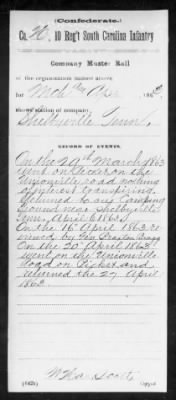 (Confederate.)
Co. H, 10 Reg't South Carolina Infantry
Company Muster Roll
of the organization named above,
for Mch & Apr, 1863.
Station of company,
Shelbyville Tenn.
RECORD OF EVENTS.
On the 29th March 1863
went on Picket on the
Unionville road nothing
of interest transpiring
returned to our Camping
Ground near Shelbyville
Tenn. April 6 1863
On the 16th April 1863 re
viewed by Gen Braxton Bragg
On the 20th April 1863
went on the Unionville
Road on Picket and
returned the 27 April
1863
(642)
Copyist.